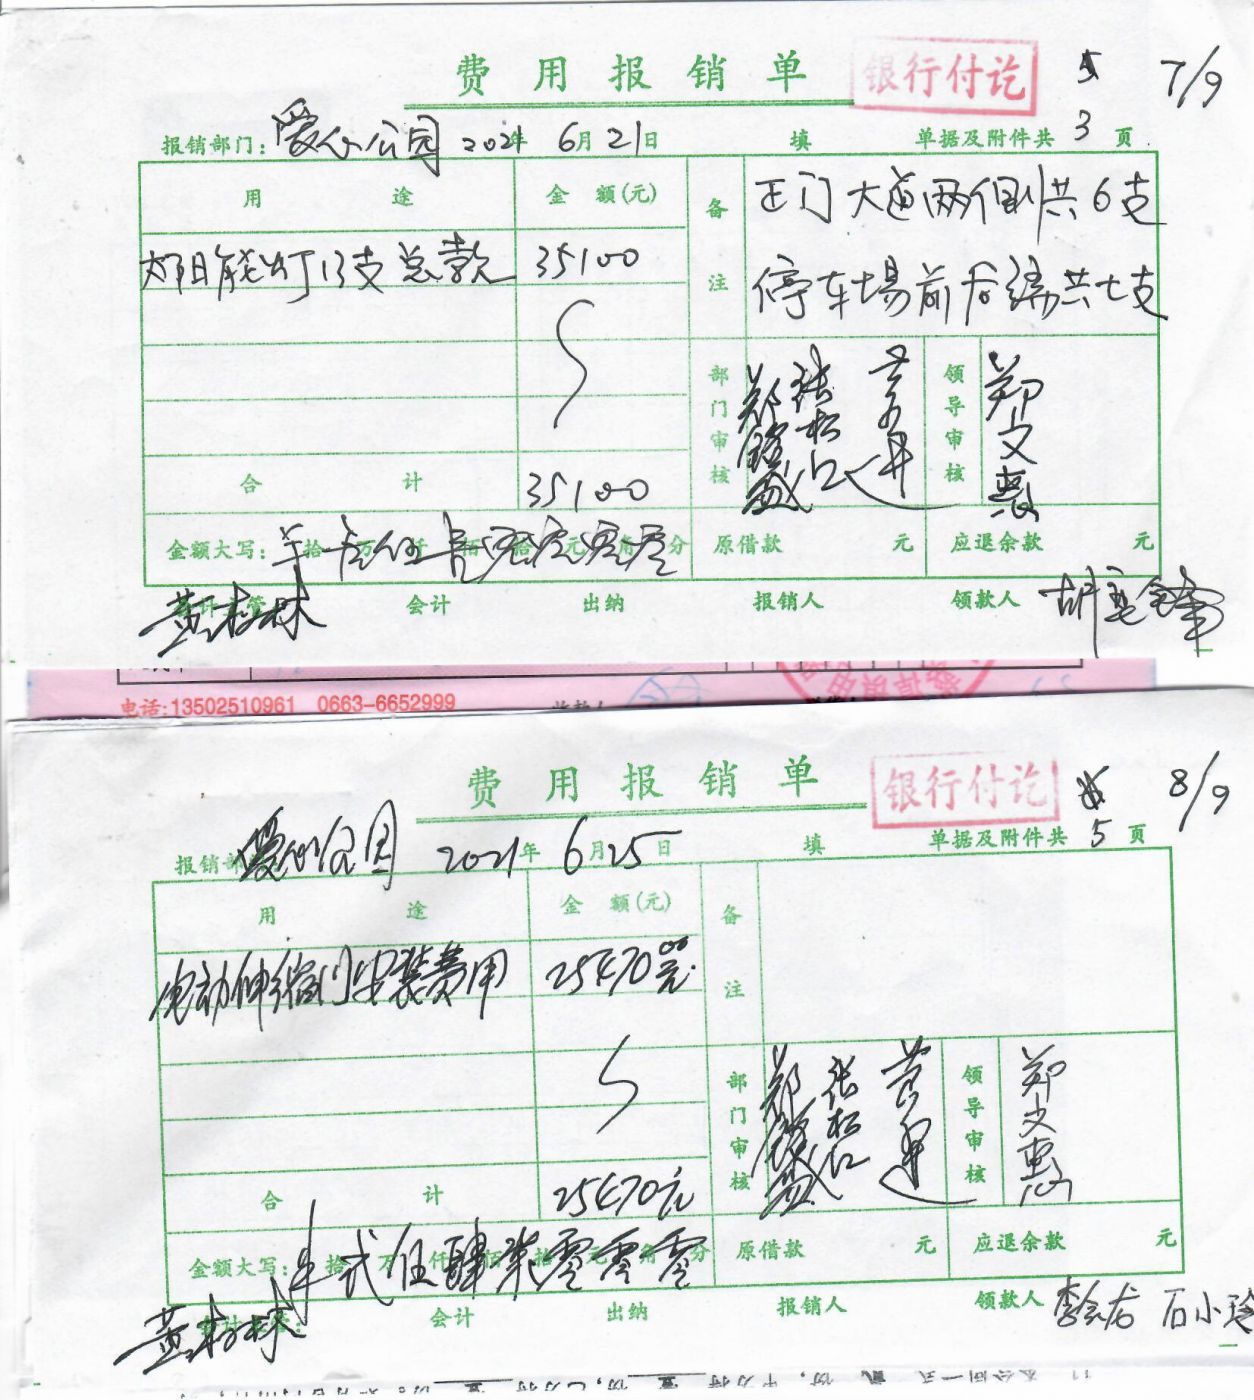 费用报销单 银行付讫 7/9
报销部门: 爱心公园 2021年 6月21日 填 单据及附件共 3 页
用途 金额(元) 备注 正门大道两侧共6支
太阳能灯13支总款 35100 停车场前后编共七支
部门审核 张松江 领导审核 郑文惠
合计 35100
金额大写: 拾 叁万伍仟壹佰零拾零元零角零分 原借款 元 应退余款 元
黄树林 会计 出纳 报销人 领款人
电话:13502510961 0663-6652999
费用报销单 银行付讫 8/9
报销部 爱心公园 2021年 6月25日 填 单据及附件共 5 页
用途 金额(元) 备注
电动伸缩门安装费用 25470.00元
部门审核 张松江 领导审核 郑文惠
合计 25470元
金额大写: 拾 贰万伍仟肆佰柒拾零元零角零分 原借款 元 应退余款 元
黄树林 会计 出纳 报销人 领款人 石小玲